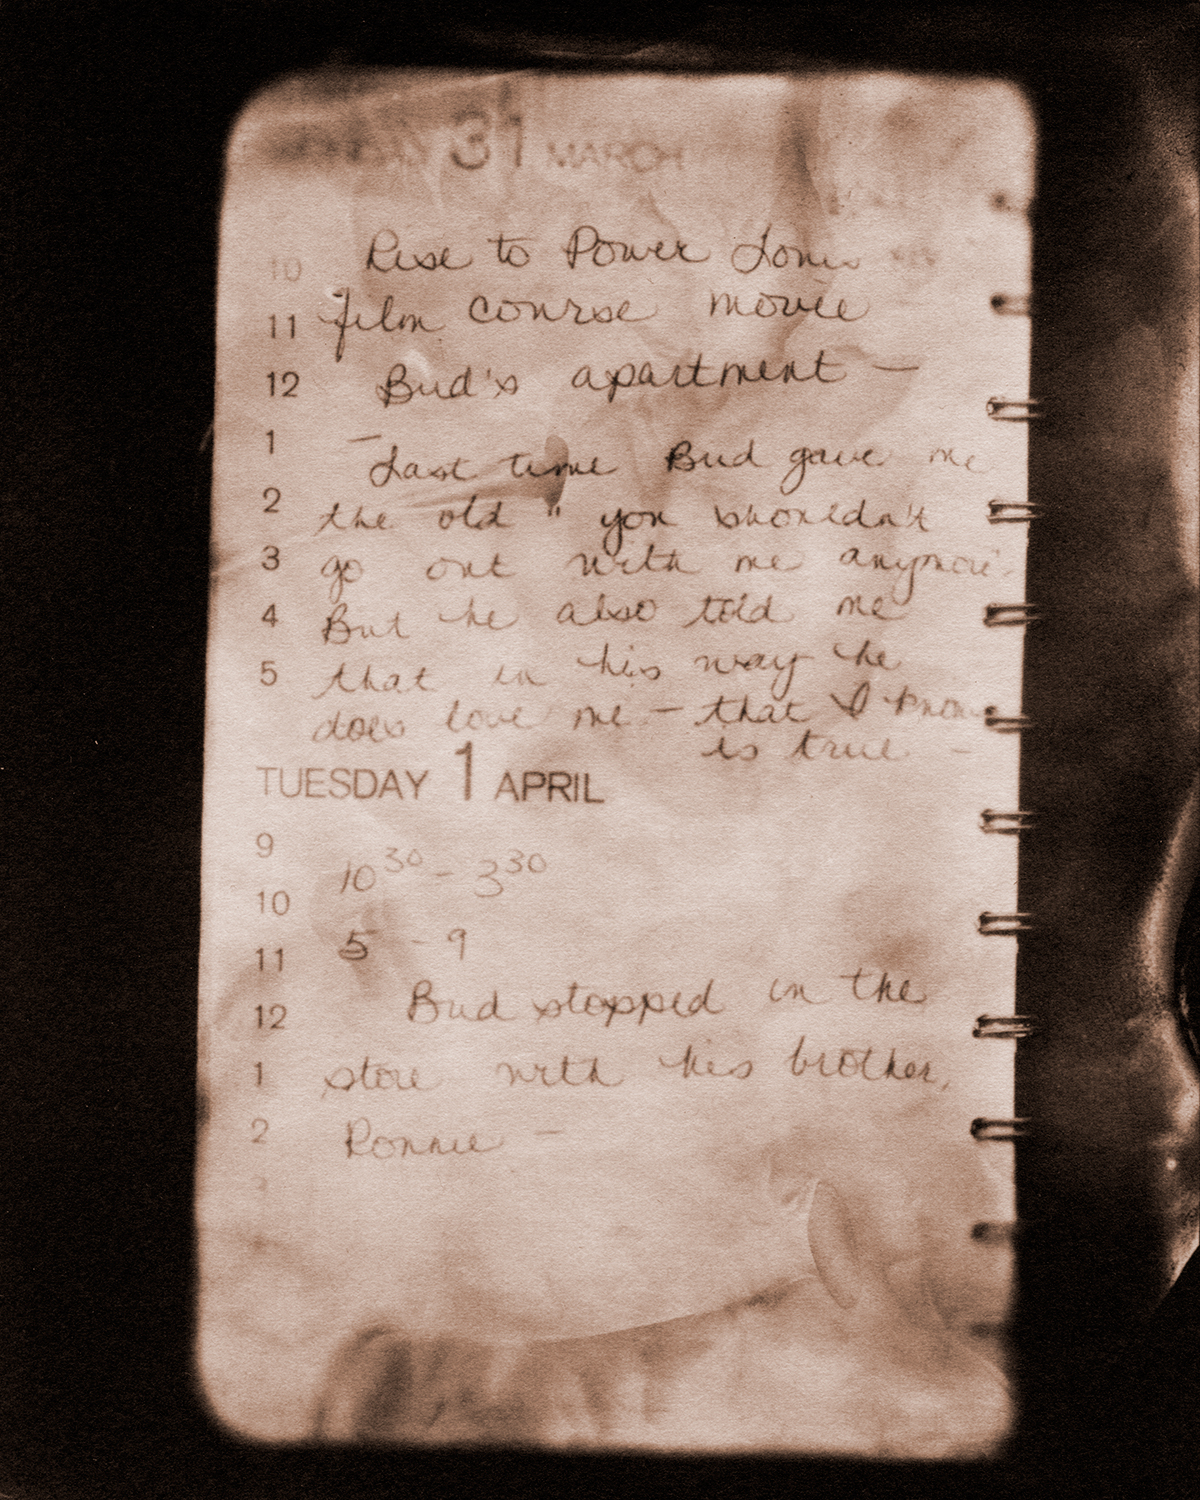 31 MARCH
10 Rise to Power Louis
11 film course movie
12 Bud's apartment —
1 —
Last time Bud gave me
2 the old " you shouldn't
3 go out with me anymore.
4 But he also told me
5 that in his way he
does love me — that I know
is true —
TUESDAY 1 APRIL
9
10³⁰ - 3³⁰
10
5 - 9
11
12 Bud stopped in the
1 store with his brother,
2 Ronnie —
3